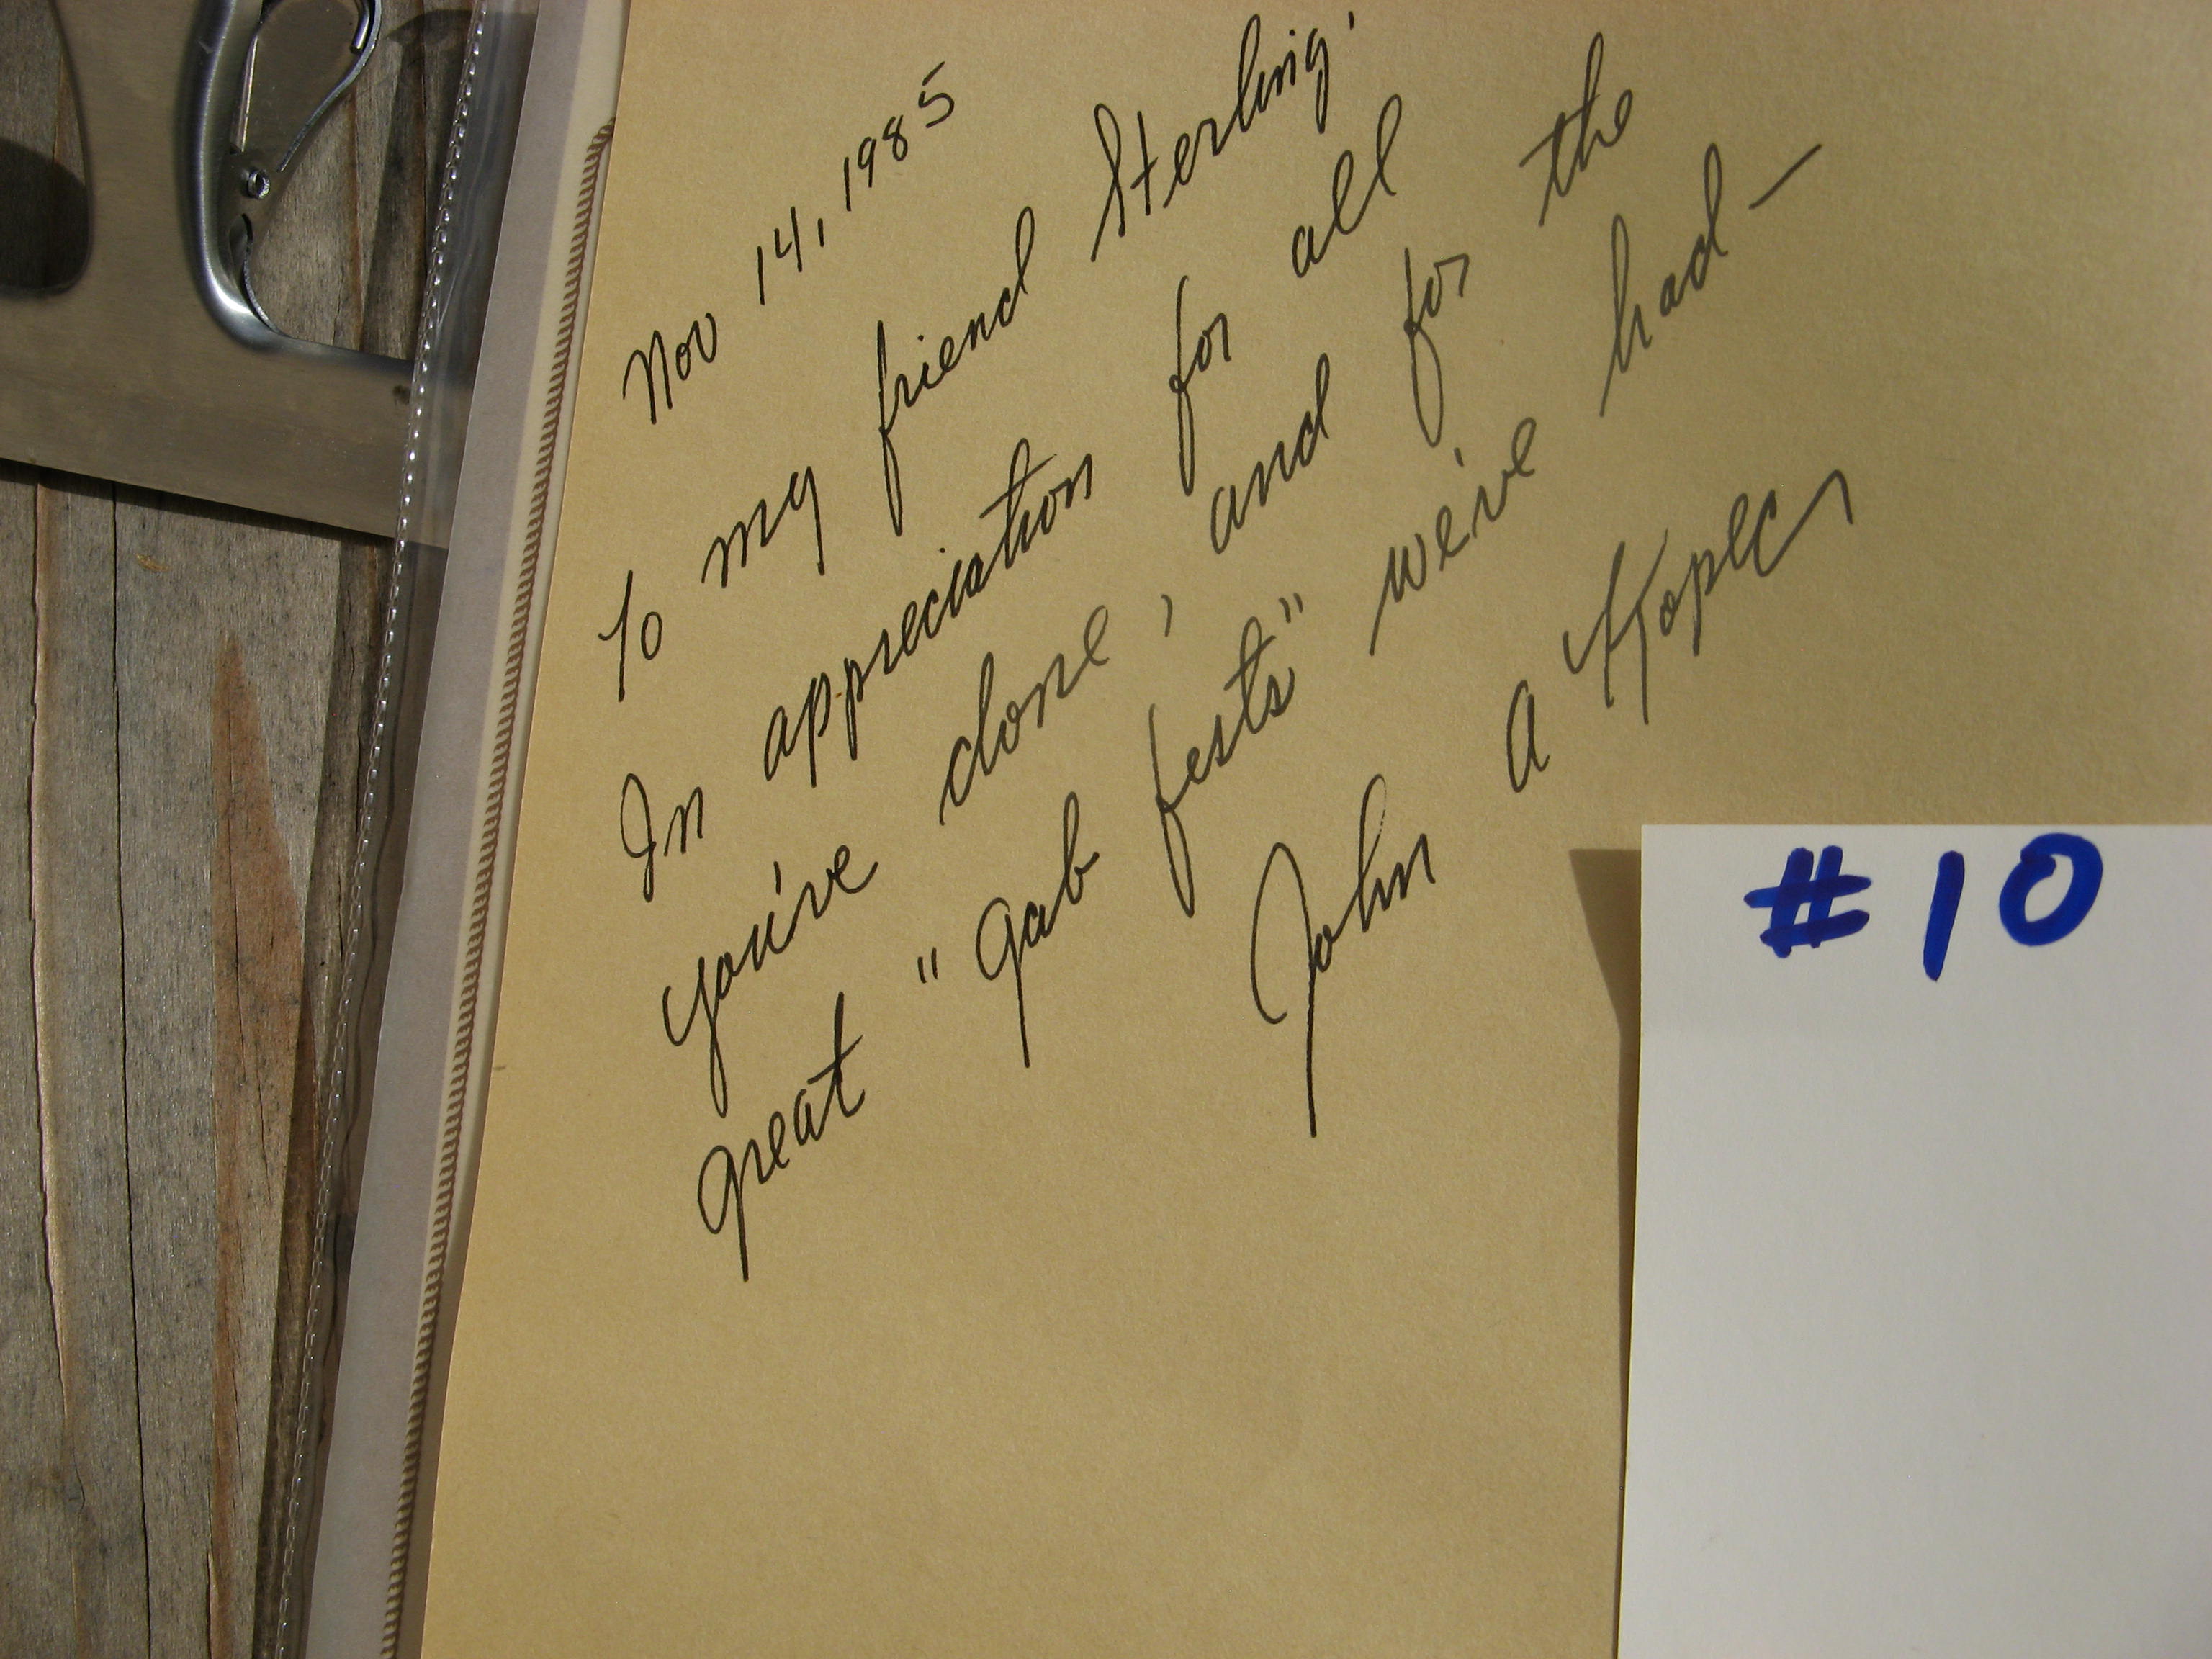 Nov 14, 1985
To my friend Sterling:
In appreciation for all
you've done, and for the
great "gab fests" we've had —
John A
#10